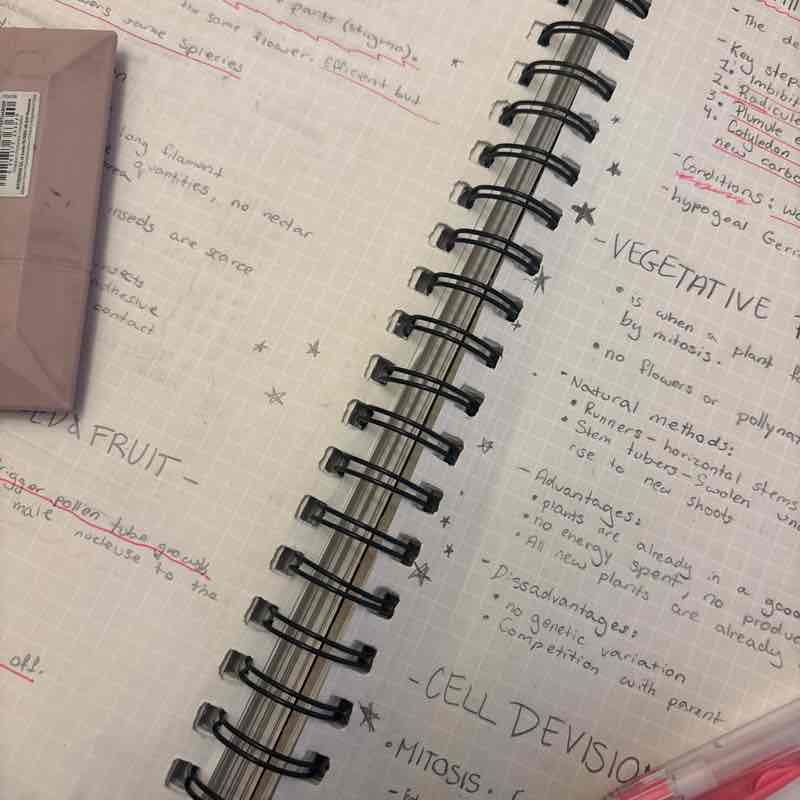 plants (stigma).
same species
the same flower. Efficient but
long filament
quantities, no nectar
area
insects are scarce
insects
adhesive
contact
FRUIT -
trigger pollen tube growth
male nucleuse to the
off.
- The de
- Key step
1. Imbibit
2. Radicule
3. Plumule e
4. Cotyledon
new carbo
- Conditions: wa
- hypogeal Geri
- VEGETATIVE
• is when a plant
by mitosis.
• no flowers or pollynat
- Natural methods:
• Runners - horizontal stems
• Stem tubers - Swolen un
rise to new shoots
- Advantages:
• plants are already in a good
• no energy spent, no produc
• All new plants are already
- Dissadvantages:
• no genetic variation
• Competition with parent
- CELL DEVISION
• MITOSIS.